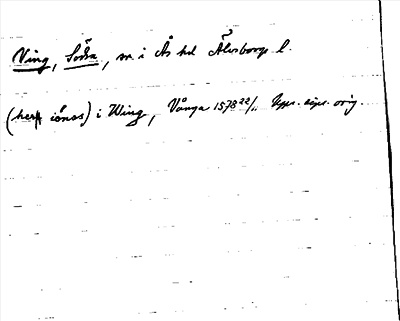 Ving, Södra, sn i Ås hd Älvsborgs l.
(herr iönas) i Wing, Vånga 1578 22/11 Upps. dipl. orig.